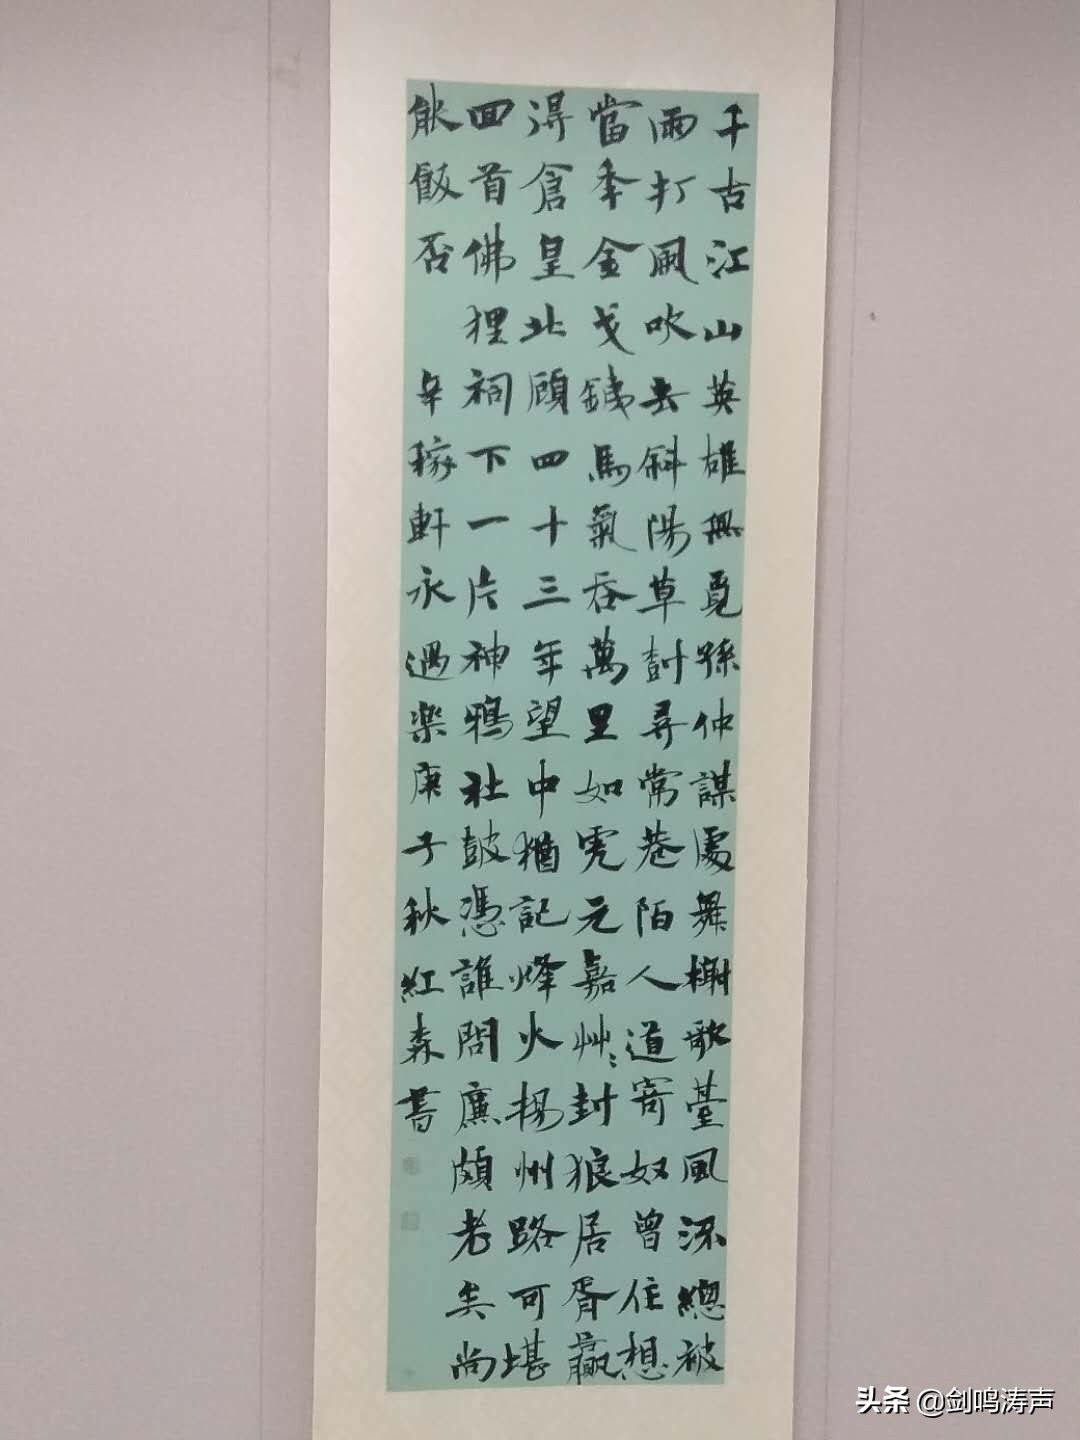 千古江山英雄無覓孫仲謀處舞榭歌臺風流總被
雨打風吹去斜陽草樹尋常巷陌人道寄奴曾住想
當秊金戈鐵馬氣吞萬里如虎元嘉艸〻封狼居胥贏
得倉皇北顧四十三年望中猶記烽火揚州路可堪
回首佛狸祠下一片神鴉社鼓憑誰問廉頗老矣尚
能飯否 辛稼軒永遇樂庚子秋紅森書
头条 @剑鸣涛声